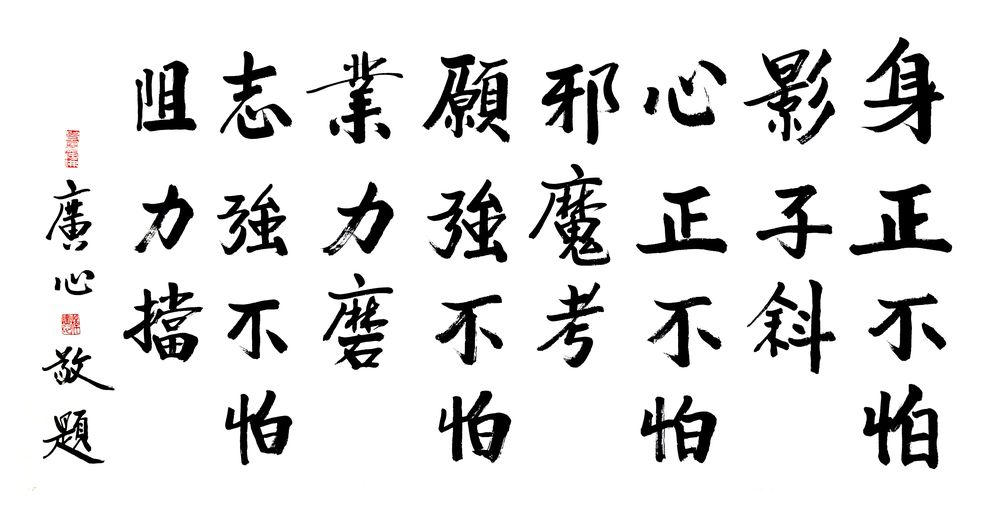 身正不怕
影子斜
心正不怕
邪魔考
願強不怕
業力磨
志強不怕
阻力擋
廣心敬題